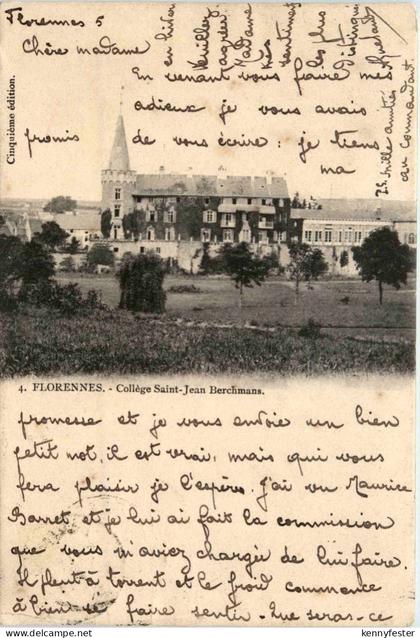 Florennes 5
Chère madame
En venant vous faire mes
adieux je vous avais
promis de vous écrire : je tiens
ma
en hiver
Veuillez
agréer
Madame
les
sentiments
les plus
distingués
mille amitiés
au Commandant.
Cinquième édition.
4. FLORENNES. - Collège Saint-Jean Berchmans.
promesse et je vous envoie un bien
petit mot, il est vrai, mais qui vous
fera plaisir je l'espère. J'ai vu Maurice
Barret et je lui ai fait la commission
que vous m'aviez chargée de lui faire.
Il pleut à torrent et le froid commence
à bien se faire sentir - Que sera-ce
FLORENNES-Delcampe and www.kennyfester.com